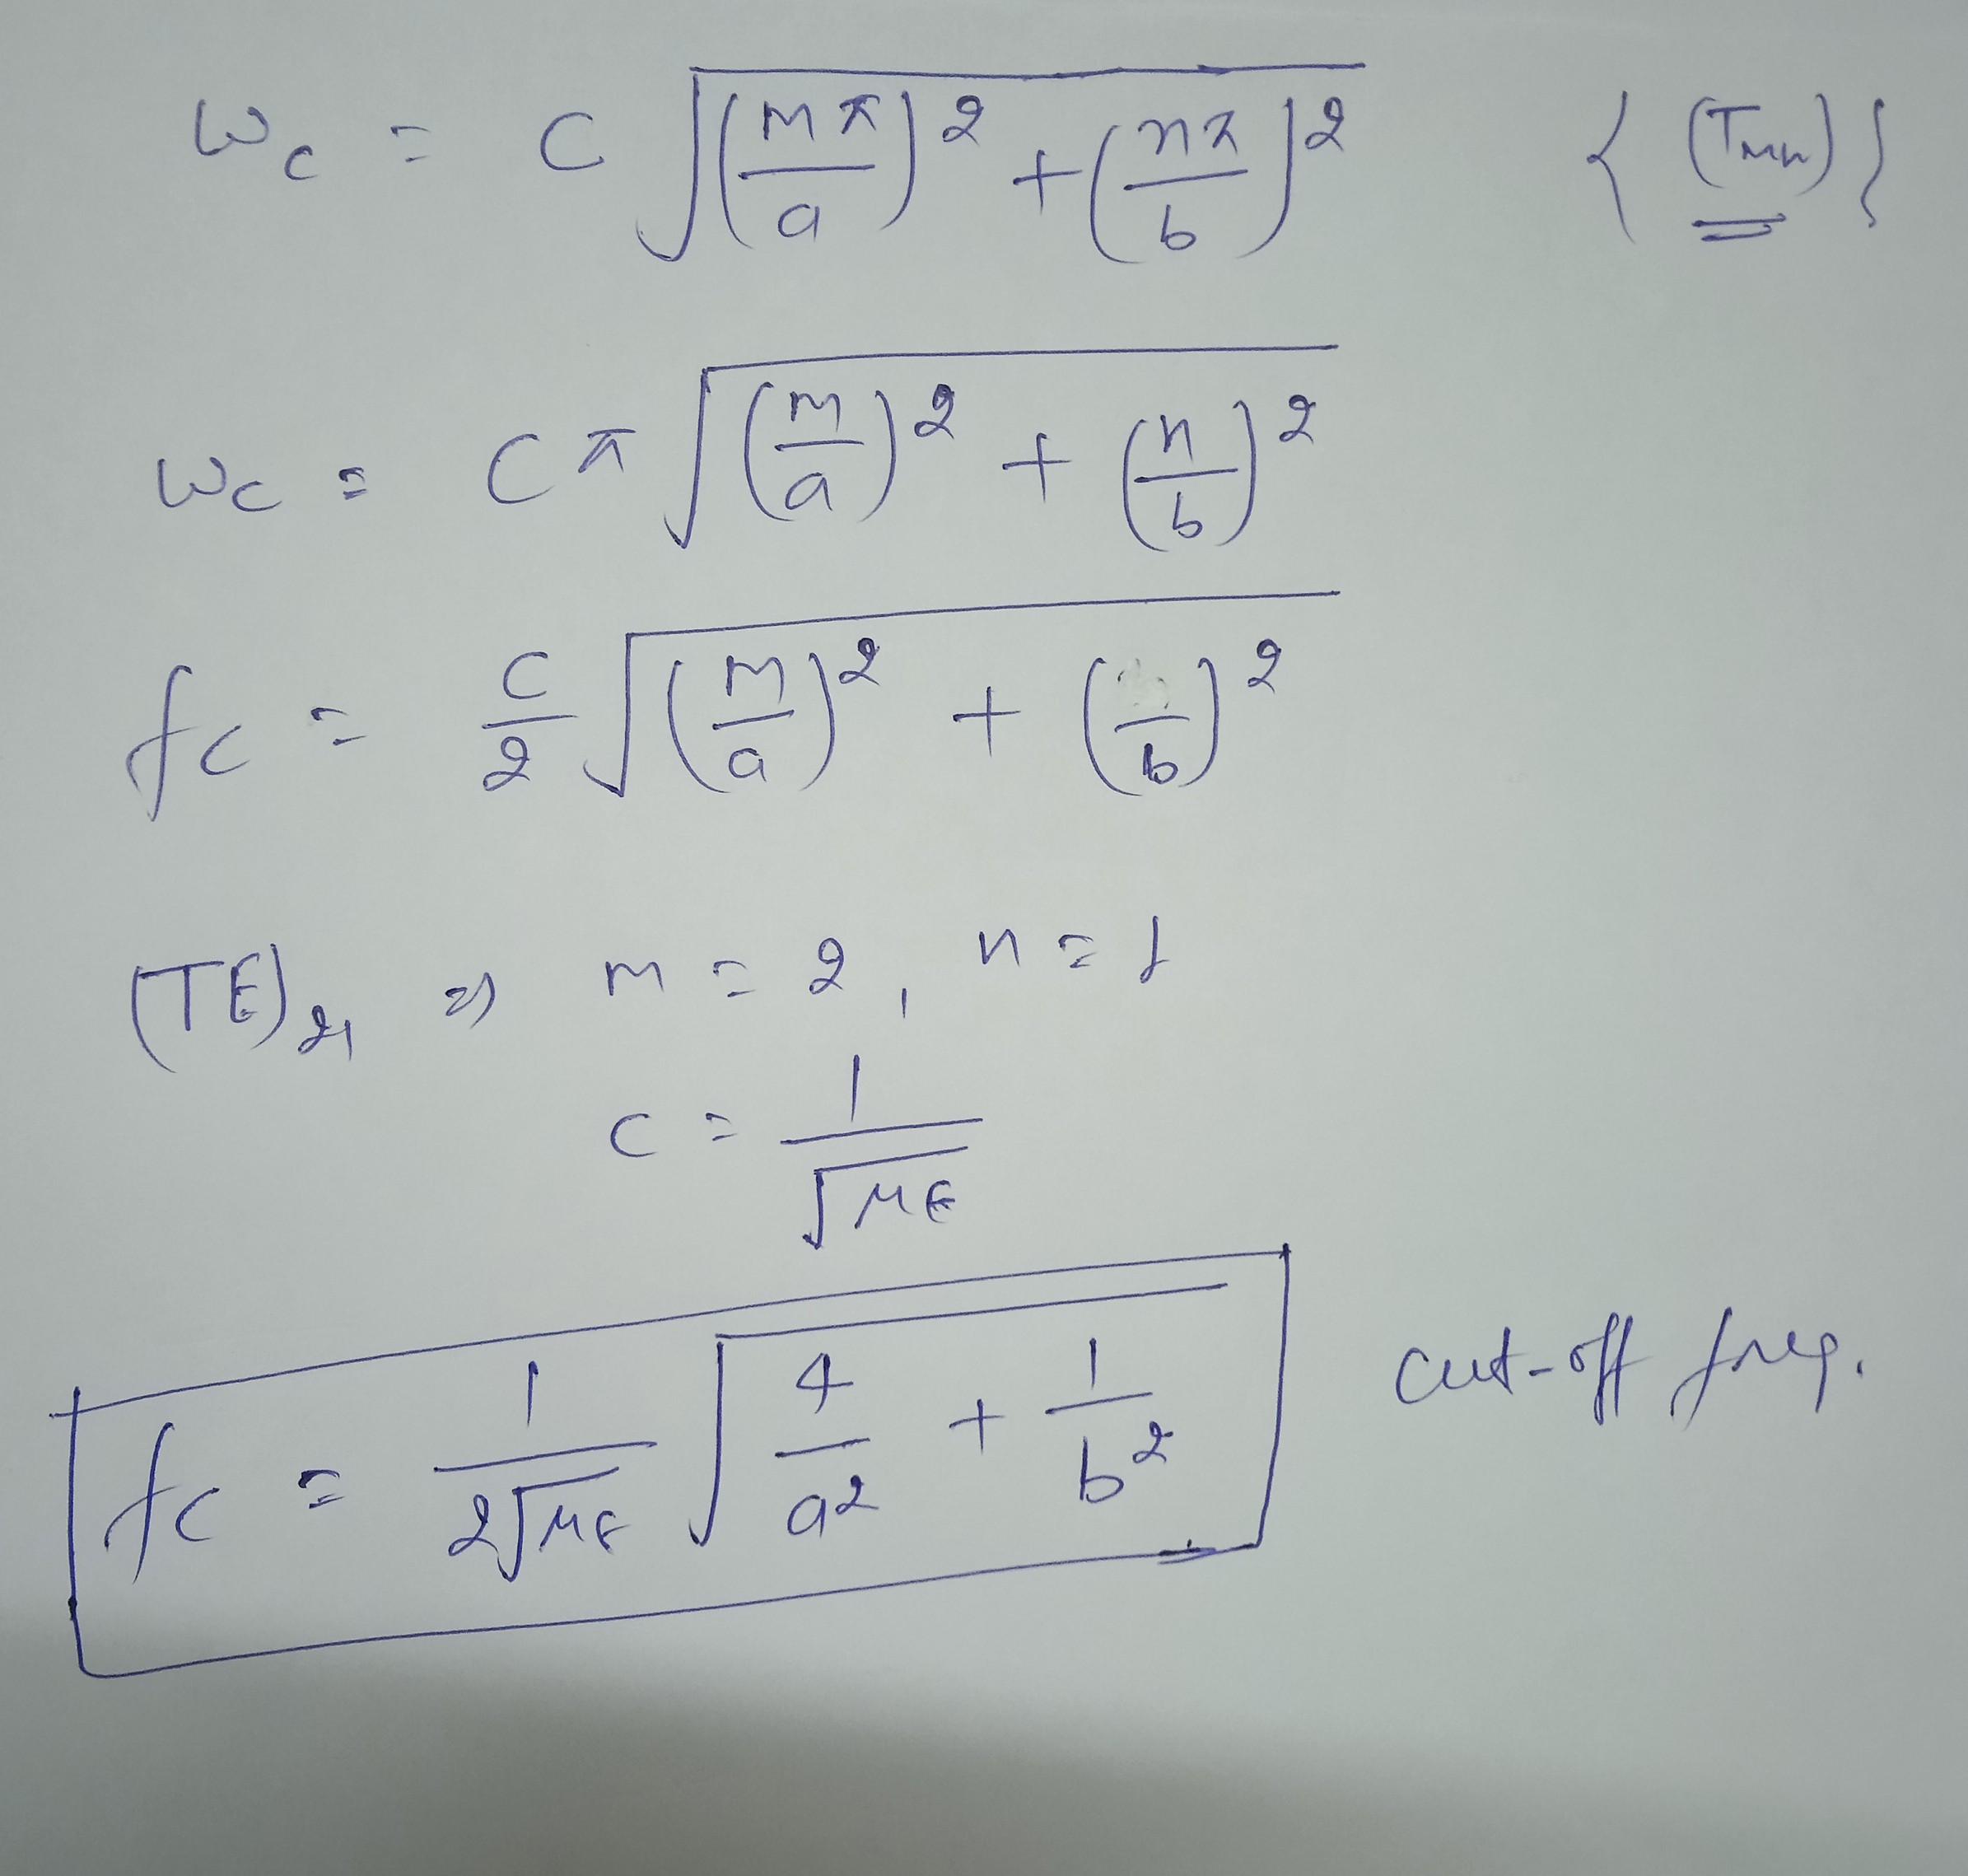 ωc = C √((mπ/a)² + (nπ/b)²) { (Tmn) }
ωc = Cπ √((m/a)² + (n/b)²)
fc = C/2 √((m/a)² + ( /b)²)
(TE)21 ⇒ m = 2, n = 1
c = 1/√με
fc = 1/(2√με) √(4/a² + 1/b²) cut-off freq.